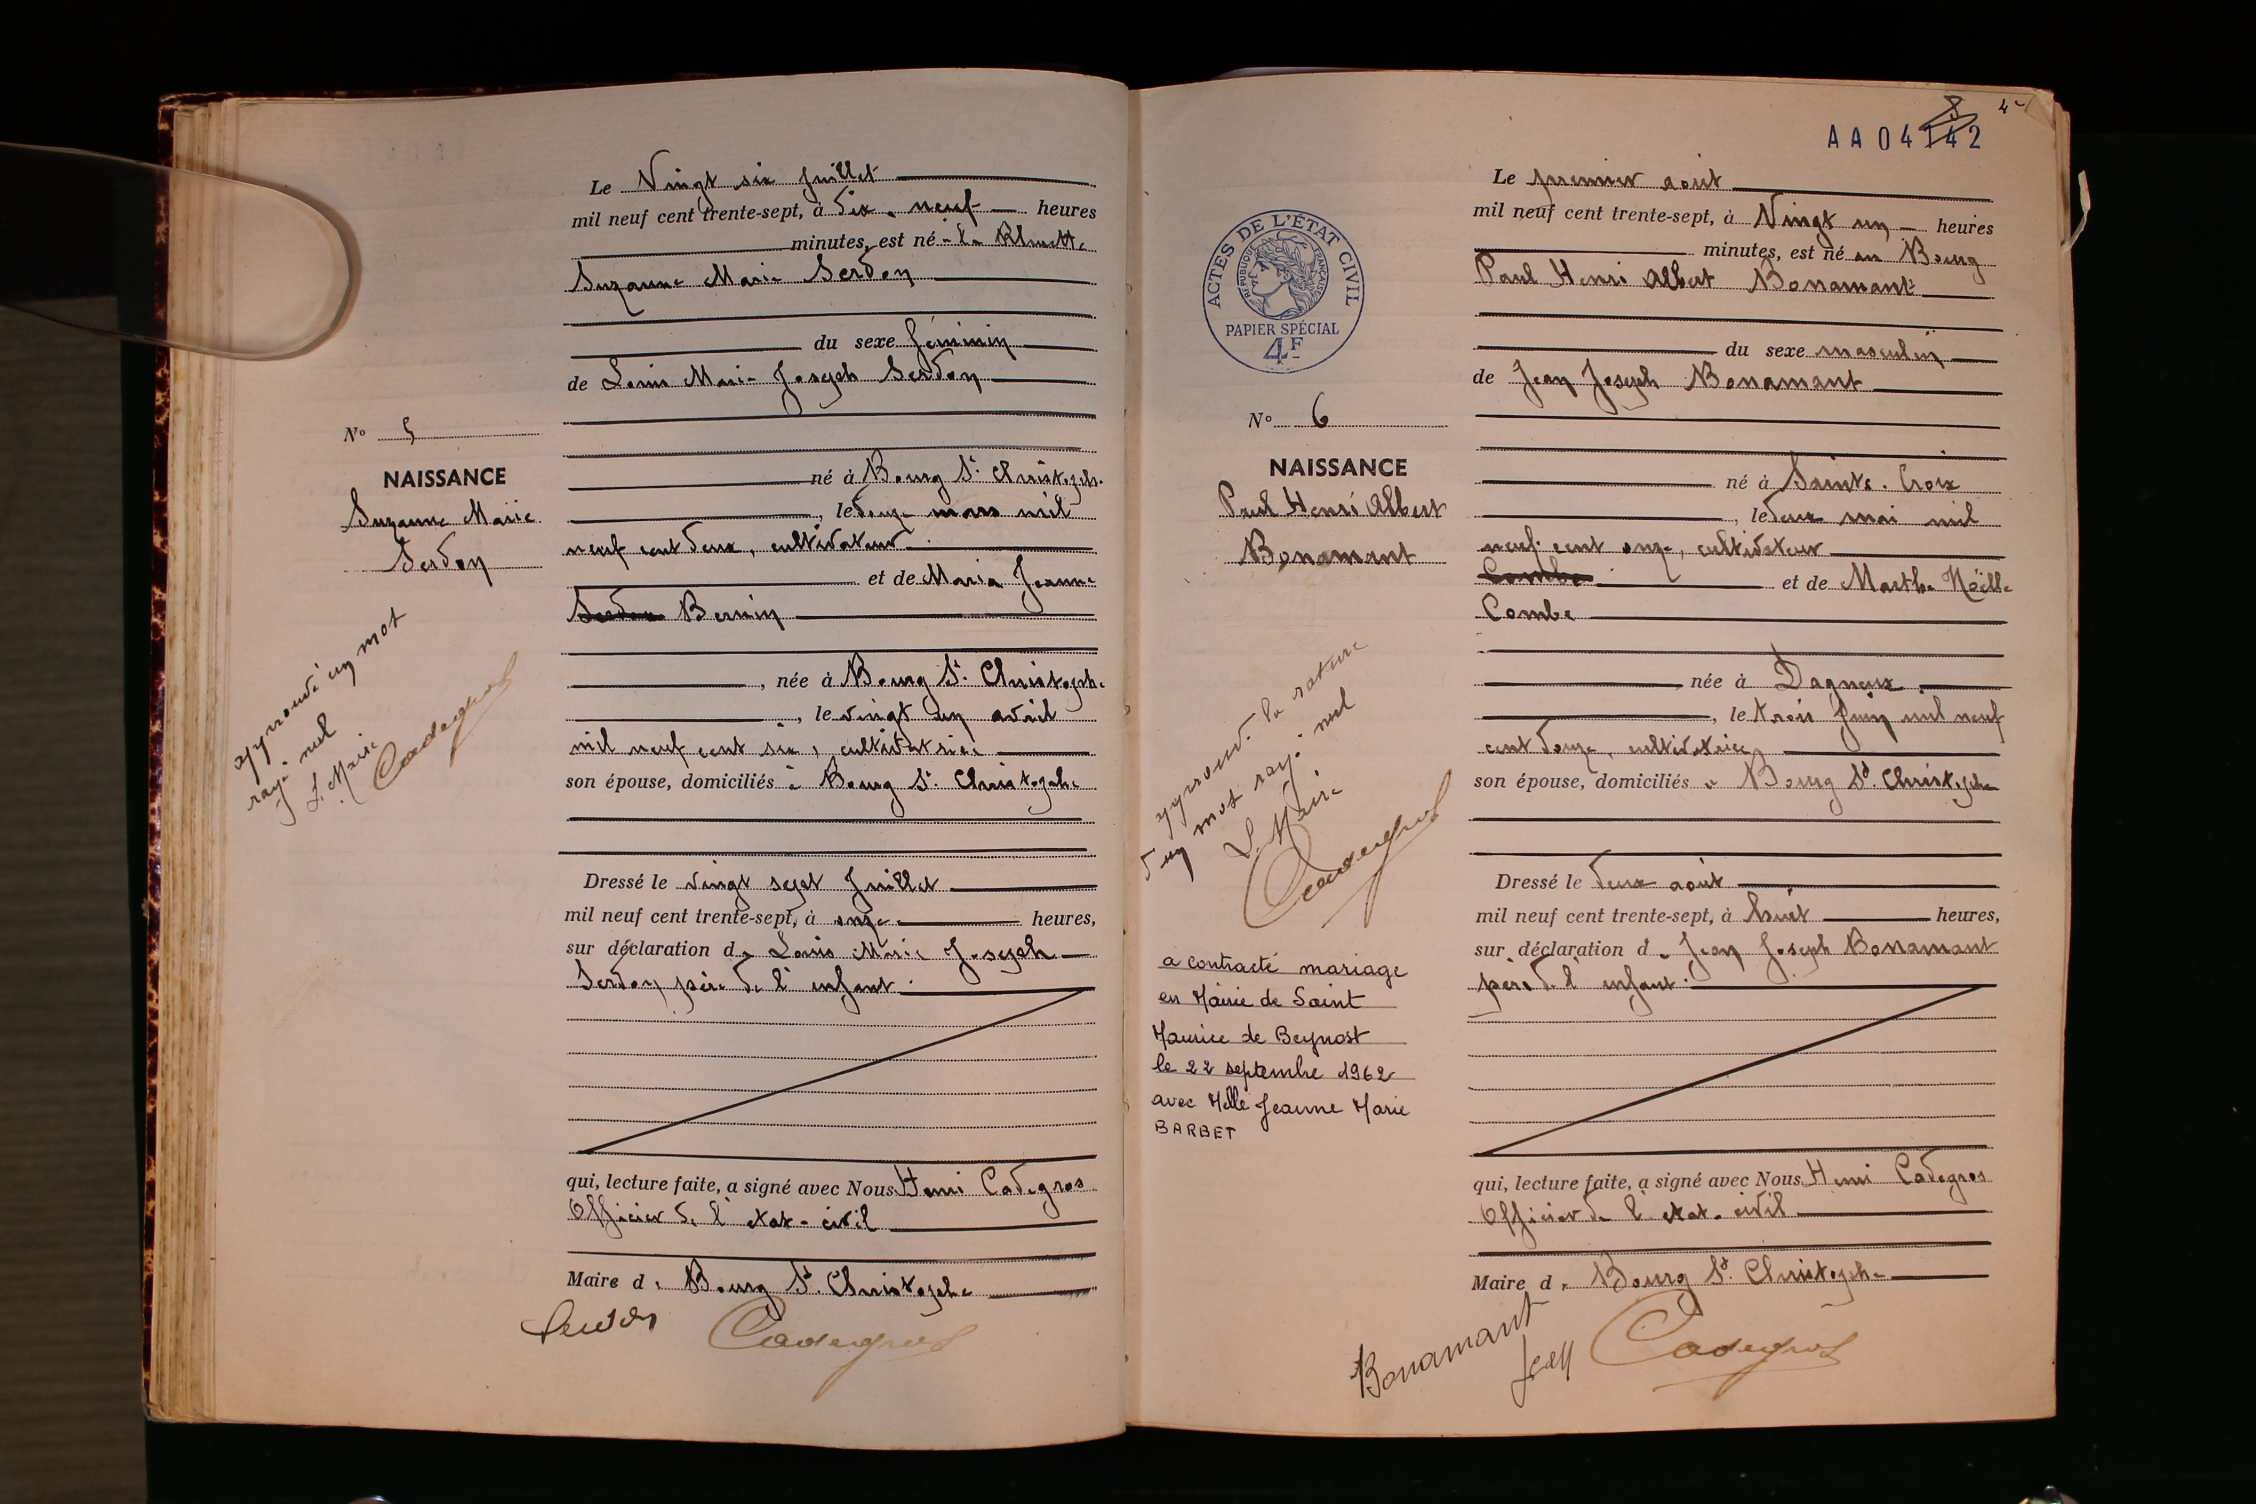 Le Vingt six juillet
mil neuf cent trente-sept, à dix-neuf heures
minutes, est né
Suzanne Marie Serdon
du sexe féminin
de Louis Marie Joseph Serdon
né à Bourg St. Christophe
, le douze mars mil
neuf cent deux, cultivateur
et de Maria Jeanne
Serdon Bernin
, née à Bourg St. Christophe
, le vingt un avril
mil neuf cent six, cultivatrice
son épouse, domiciliés à Bourg St. Christophe
Dressé le vingt sept Juillet
mil neuf cent trente-sept, à onze heures,
sur déclaration de Louis Marie Joseph
Serdon, père de l'enfant.
qui, lecture faite, a signé avec Nous Henri Cadegros
Officier de l'etat-civil
Maire de Bourg St. Christophe
Serdon
Cadegros
No 5
NAISSANCE
Suzanne Marie
Serdon
approuvé un mot
rayé nul
Le Maire
Cadegros
8
4
AA04142
Le premier août
mil neuf cent trente-sept, à Vingt un heures
minutes, est né au Bourg
Paul Henri Albert Bonamant
du sexe masculin
de Jean Joseph Bonamant
né à Sainte-Croix
, le deux mai mil
neuf cent onze, cultivateur
Combe et de Marthe Noëlle
Combe
née à Dagneux
, le trois Juin mil neuf
cent douze, cultivatrice
son épouse, domiciliés à Bourg St. Christophe
Dressé le deux août
mil neuf cent trente-sept, à huit heures,
sur déclaration de Jean Joseph Bonamant
père de l'enfant.
qui, lecture faite, a signé avec Nous Henri Cadegros
Officier de l'etat-civil
Maire de Bourg St. Christophe
Bonamant
Jean
Cadegros
ACTES DE L'ÉTAT CIVIL
RÉPUBLIQUE FRANÇAISE
PAPIER SPÉCIAL
4F
No 6
NAISSANCE
Paul Henri Albert
Bonamant
approuvé la rature
d'un mot rayé nul
Le Maire
Cadegros
a contracté mariage
en Mairie de Saint
Maurice de Beynost
le 22 septembre 1962
avec Melle Jeanne Marie
BARBET